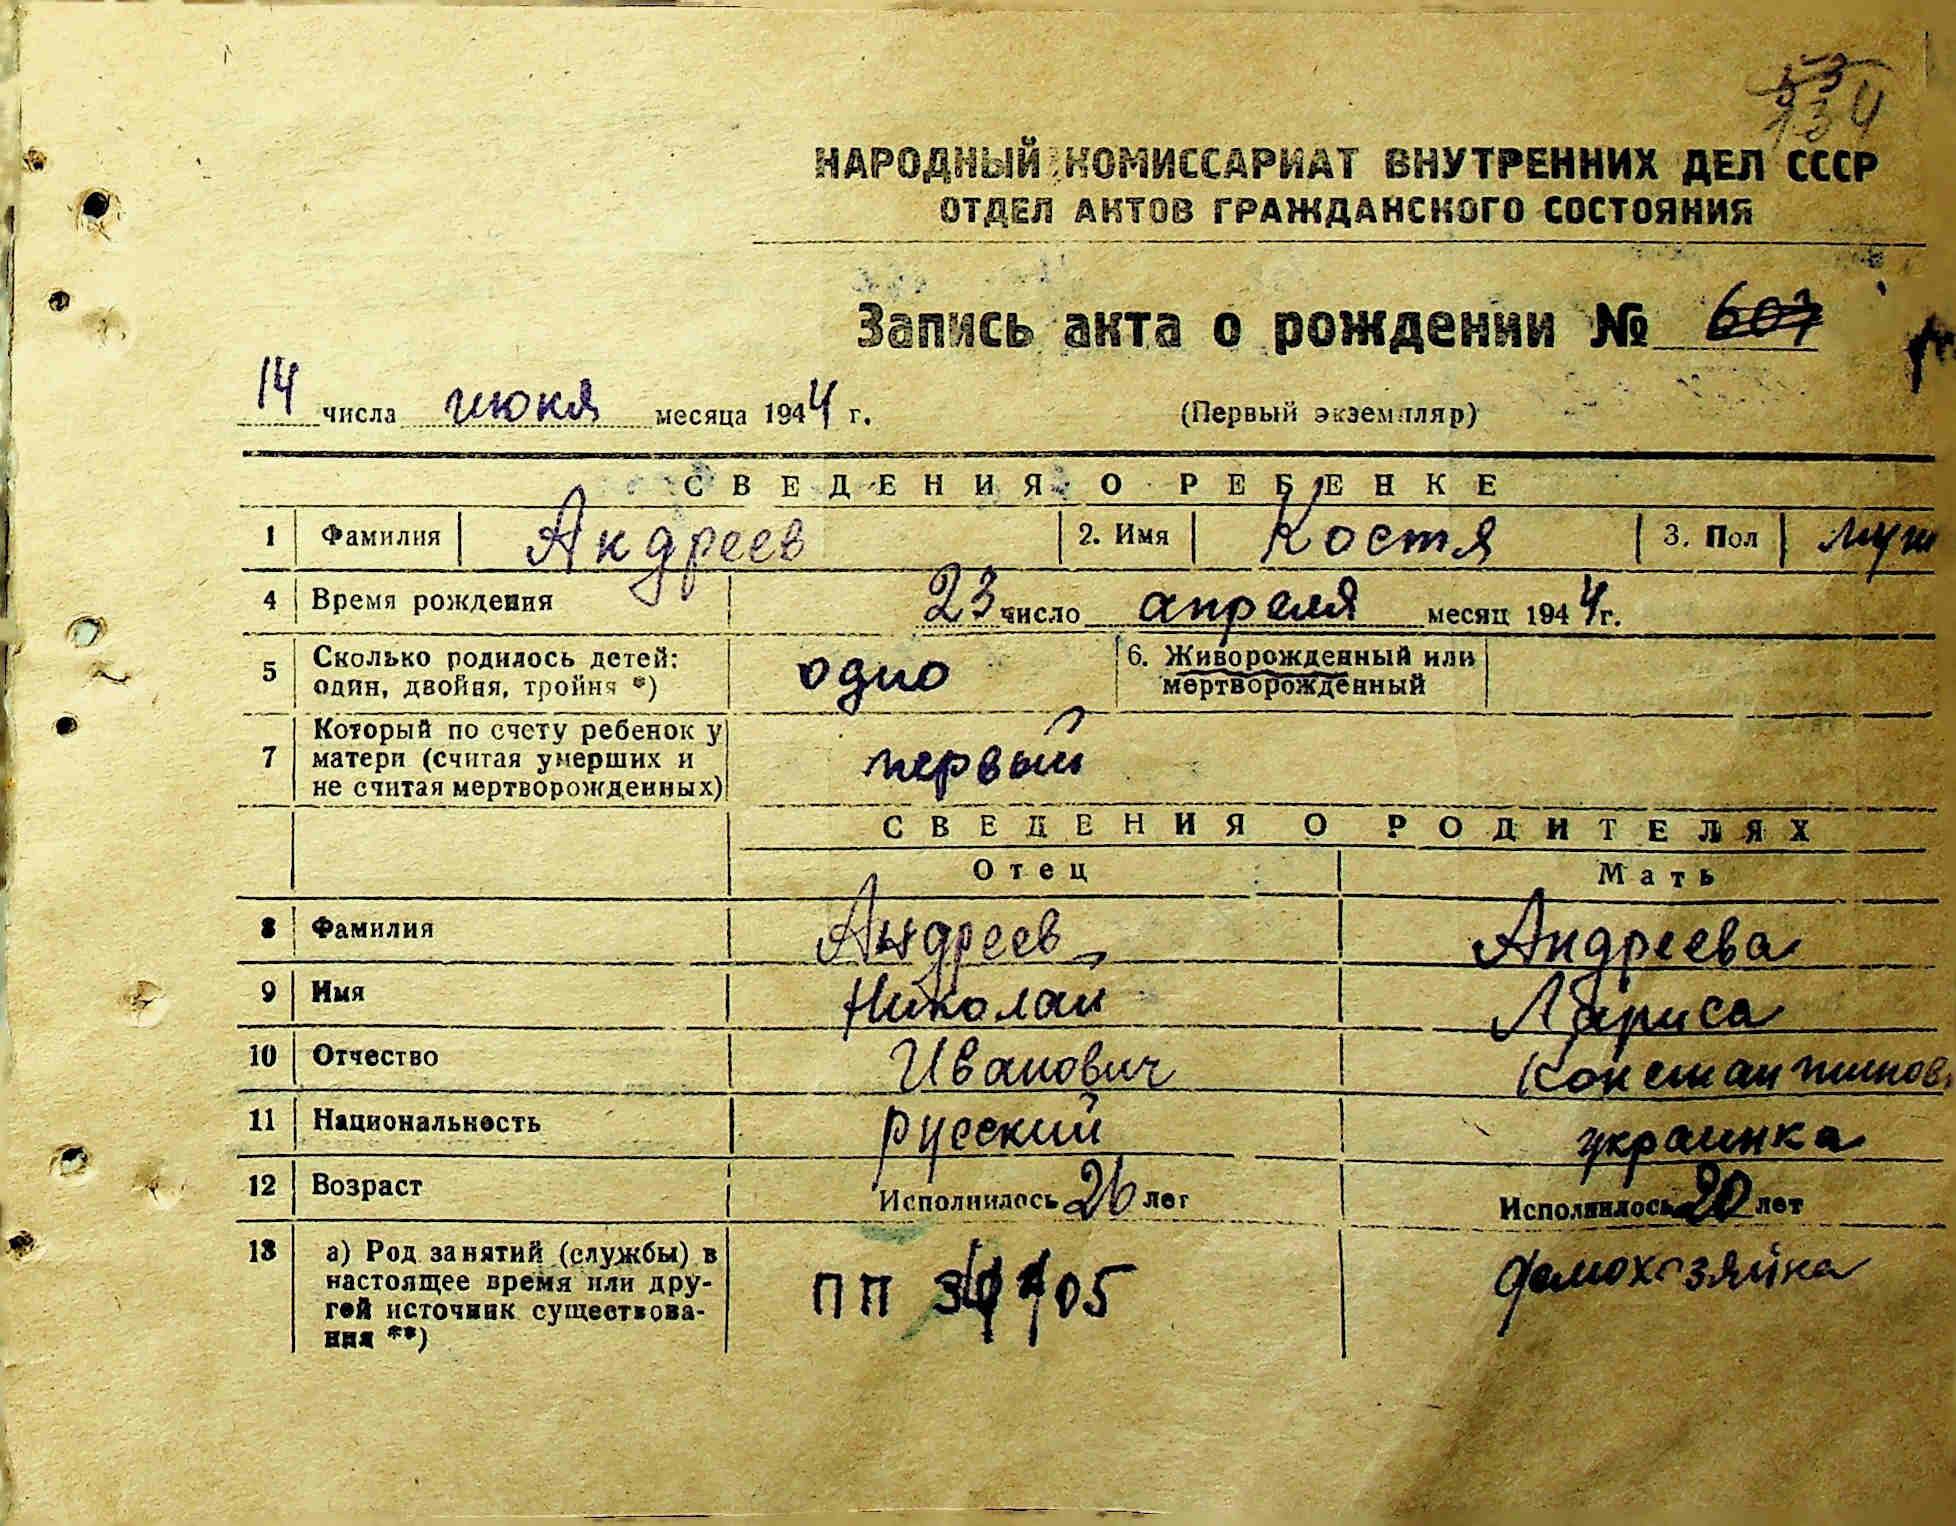 134
НАРОДНЫЙ КОМИССАРИАТ ВНУТРЕННИХ ДЕЛ СССР
ОТДЕЛ АКТОВ ГРАЖДАНСКОГО СОСТОЯНИЯ
Запись акта о рождении № 607
14 числа июня месяца 1944 г. (Первый экземпляр)
СВЕДЕНИЯ О РЕБЕНКЕ
1 Фамилия Андреев 2. Имя Костя 3. Пол муж
4 Время рождения 23 число апреля месяц 1944г.
5 Сколько родилось детей: один, двойня, тройня *) одно 6. Живорожденный или мертворожденный
7 Который по счету ребенок у матери (считая умерших и не считая мертворожденных) первый
СВЕДЕНИЯ О РОДИТЕЛЯХ
Отец Мать
8 Фамилия Андреев Андреева
9 Имя Николай Лариса
10 Отчество Иванович Константинов
11 Национальность русский украинка
12 Возраст Исполнилось 26 лет Исполнилось 20 лет
13 а) Род занятий (службы) в настоящее время или другой источник существования **) ПП домохозяйка